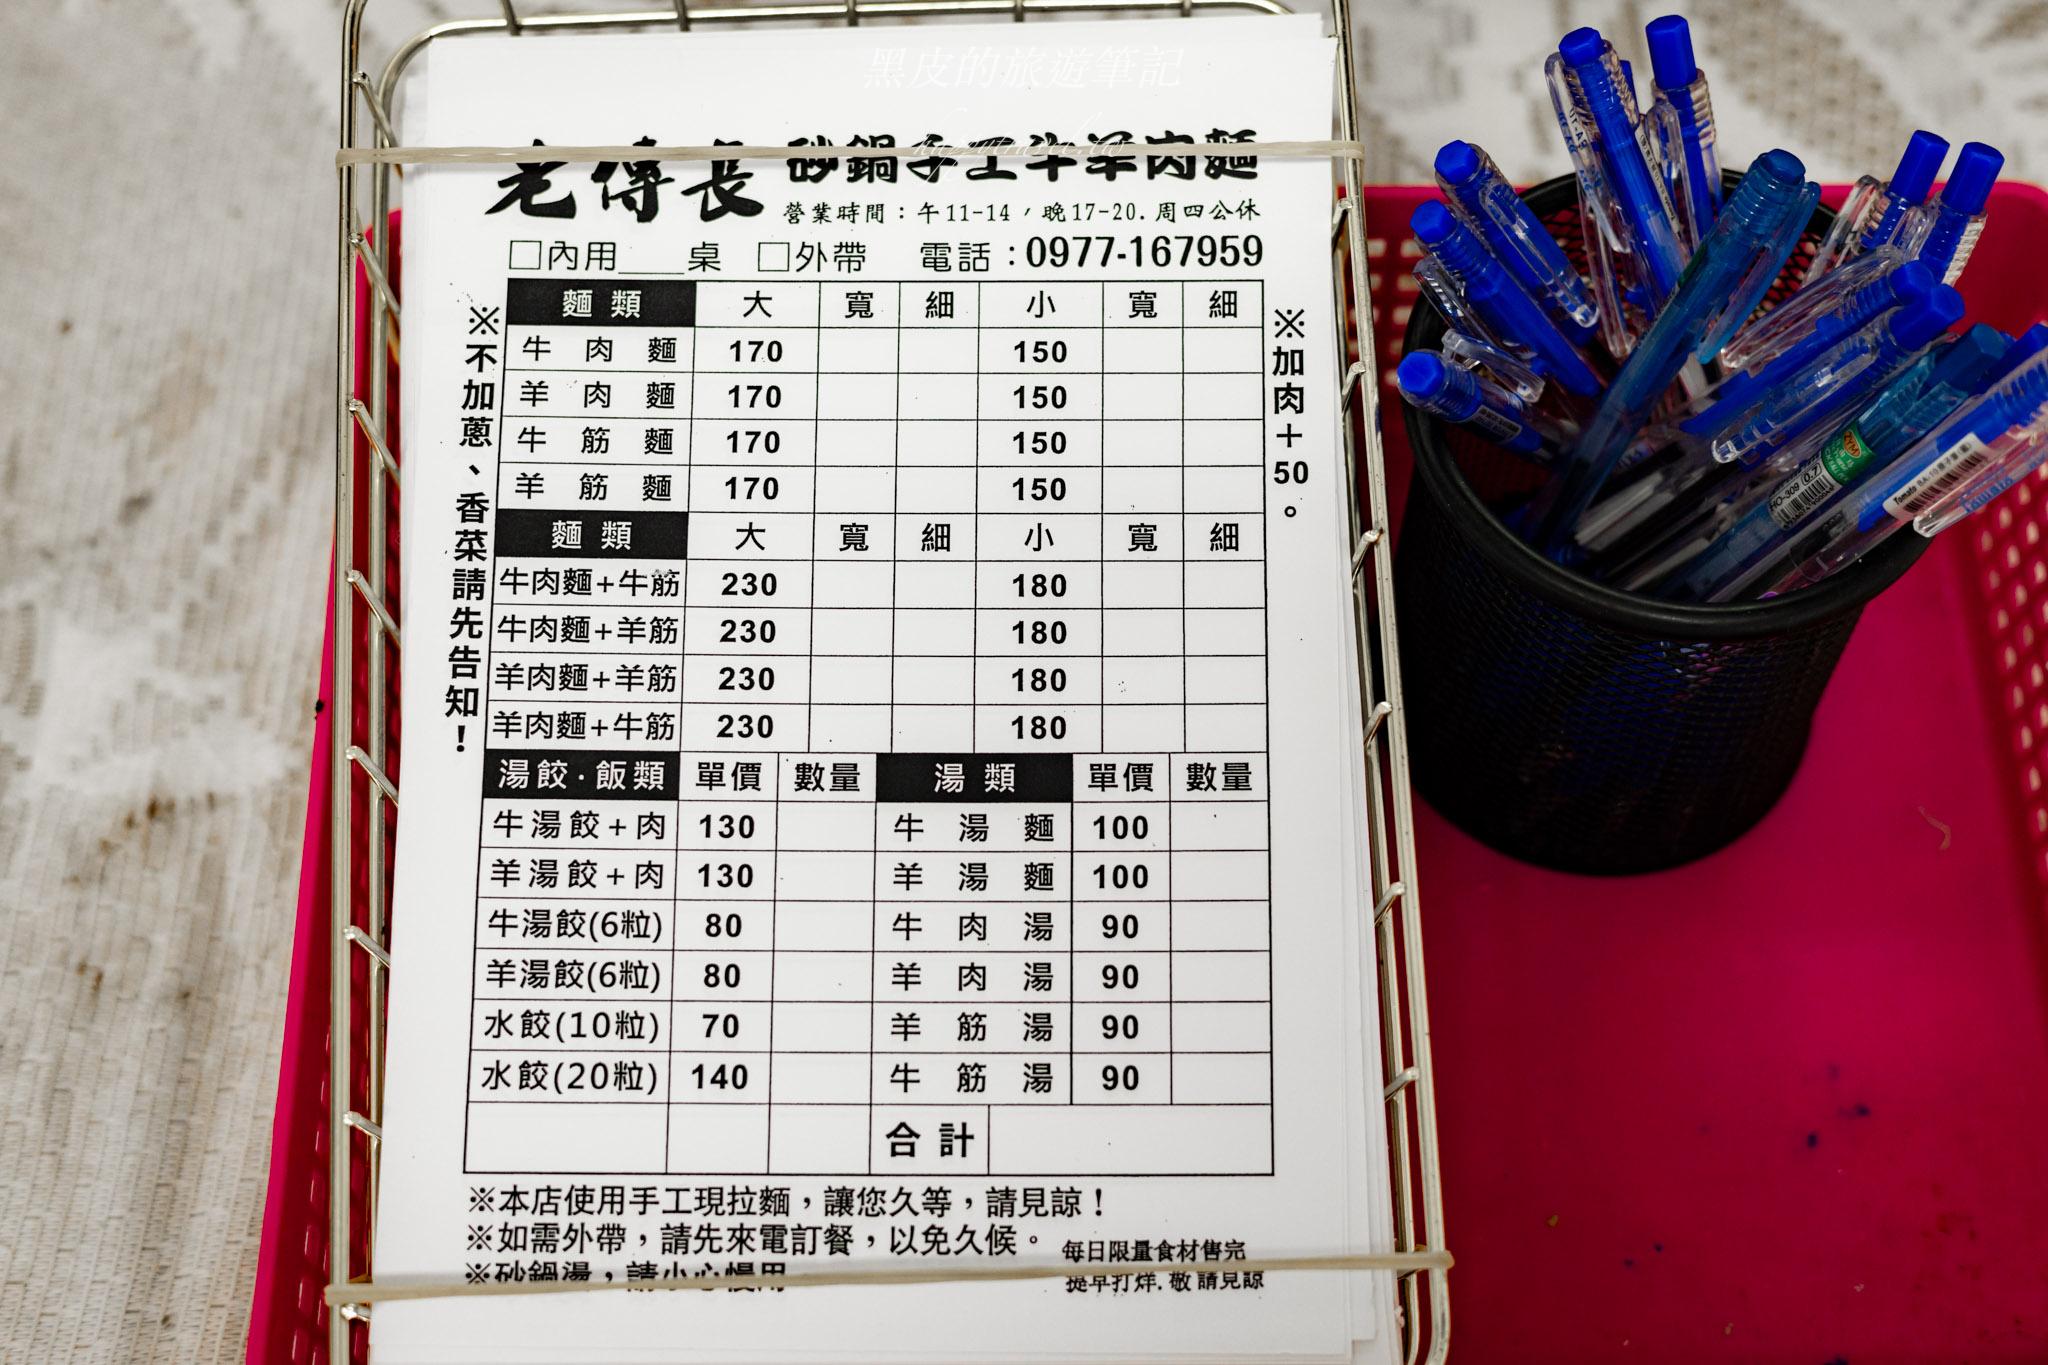 黑皮的旅遊筆記
老傳長 砂鍋手工牛羊肉麵
營業時間：午11-14，晚17-20.周四公休
□內用___桌 □外帶 電話：0977-167959
※不加蔥、香菜請先告知！
※加肉＋50。
麵類 大 寬 細 小 寬 細
牛肉麵 170 150
羊肉麵 170 150
牛筋麵 170 150
羊筋麵 170 150
麵類 大 寬 細 小 寬 細
牛肉麵+牛筋 230 180
牛肉麵+羊筋 230 180
羊肉麵+羊筋 230 180
羊肉麵+牛筋 230 180
湯餃·飯類 單價 數量 湯類 單價 數量
牛湯餃+肉 130 牛湯麵 100
羊湯餃+肉 130 羊湯麵 100
牛湯餃(6粒) 80 牛肉湯 90
羊湯餃(6粒) 80 羊肉湯 90
水餃(10粒) 70 羊筋湯 90
水餃(20粒) 140 牛筋湯 90
合計
※本店使用手工現拉麵，讓您久等，請見諒！
※如需外帶，請先來電訂餐，以免久候。
※砂鍋湯，請小心慢用
每日限量食材售完
提早打烊.敬請見諒